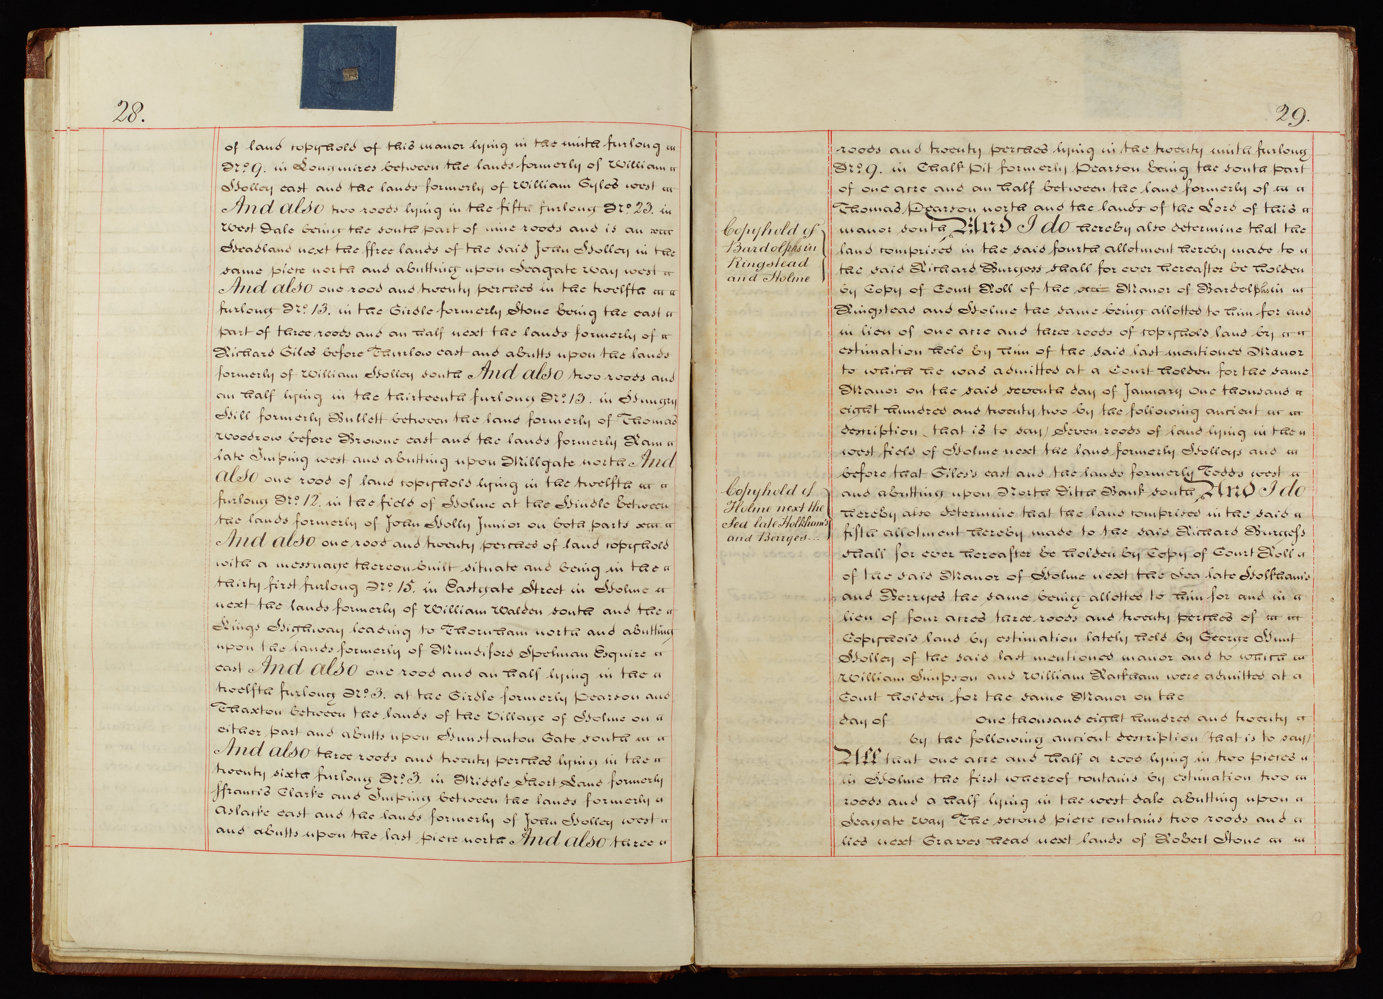 28.
of land copyhold of this manor lying in the ninth furlong
No. 9. in Longmires between the lands formerly of William
Holley east and the lands formerly of William Gyles west
And also two roods lying in the fifth furlong No. 23. in
West Dale being the south part of nine roods and is an
Headland next the ffree lands of the said John Holley in the
same piece north and abutting upon Seagate way west
And also one rood and twenty perches in the twelfth
furlong No. 13. in the Girdle formerly Stone being the east
part of three roods and an half next the lands formerly of
Richard Giles before Thurlow east and abutts upon the lands
formerly of William Holley south And also two roods and
an half lying in the thirteenth furlong No. 13. in Hungry
Hill formerly Bullett between the land formerly of Thomas
Woodrow before Browne east and the lands formerly Ram
late Imping west and abutting upon Millgate north And
also one rood of land copyhold lying in the twelfth
furlong No. 12. in the field of Holme at the Hindle between
the lands formerly of John Holly Junior on both parts
And also one rood and twenty perches of land copyhold
with a messuage thereon built situate and being in the
thirty first furlong No. 15. in Eastgate Street in Holme
next the lands formerly of William Walden south and the
Kings Highway leading to Thornham north and abutting
upon the lands formerly of Mundiford Spelman Esquire
east And also one rood and an half lying in the
twelfth furlong No. 3. at the Girdle formerly Pearson and
Thaxton between the lands of the Village of Holme on
either part and abutts upon Hunstanton Gate south
And also three roods and twenty perches lying in the
twenty sixth furlong No. 3. in Middle Short Land formerly
ffrancis Clarke and Imping between the lands formerly
Aslacke east and the lands formerly of John Holley west
and abutts upon the last piece north And also three
29.
roods and twenty perches lying in the twenty ninth furlong
No. 9. in Chalk Pit formerly Pearson being the south part
of one acre and an half between the land formerly of
Thomas Pearson north and the lands of the Lord of this
manor south And I do hereby also determine that the
Copyhold of
Bardolphs in
Ringstead
and Holme
land comprised in the said fourth allotment hereby made to
the said Richard Burgess shall for ever hereafter be holden
by Copy of Court Roll of the Manor of Bardolphs in
Ringstead and Holme the same being allotted to him for and
in lieu of one acre and three roods of copyhold land by
estimation held by him of the said last mentioned Manor
to which he was admitted at a Court holden for the same
Manor on the said seventh day of January One thousand
eight hundred and twenty two by the following ancient
description that is to say) Seven roods of land lying in the
west field of Holme next the land formerly Holleys and
before that Giles's east and the lands formerly Todds west
and abutting upon North Ditch Bank south And I do
Copyhold of
Holme next the
Sea late Holkhams
and Berryes...
hereby also determine that the land comprised in the said
fifth allotment hereby made to the said Richard Burgess
shall for ever hereafter be holden by Copy of Court Roll
of the said Manor of Holme next the Sea late Holkhams
and Berryes the same being allotted to him for and in
lieu of four acres three roods and twenty perches of
Copyhold land by estimation lately held by George Hunt
Holley of the said last mentioned manor and to which
William Simpson and William Rackham were admitted at a
Court holden for the same Manor on the
day of One thousand eight hundred and twenty
by the following ancient description that is to say)
All that one acre and half a rood lying in two pieces
in Holme the first whereof contains by estimation two
roods and a half lying in the west dale abutting upon
Seagate way The second piece contains two roods and
lies next Graves head next lands of Robert Stone